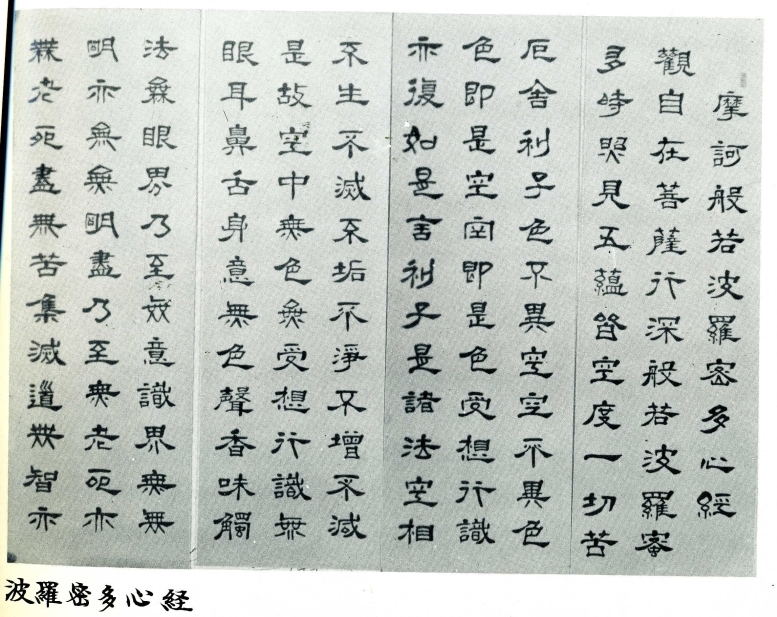 摩訶般若波羅密多心經
觀自在菩薩行深般若波羅蜜
多時照見五蘊皆空度一切苦
厄舍利子色不異空空不異色
色即是空空即是色受想行識
亦復如是舍利子是諸法空相
不生不滅不垢不淨不增不減
是故空中無色無受想行識無
眼耳鼻舌身意無色聲香味觸
法無眼界乃至無意識界無無
明亦無無明盡乃至無老死亦
無老死盡無苦集滅道無智亦
波羅密多心経